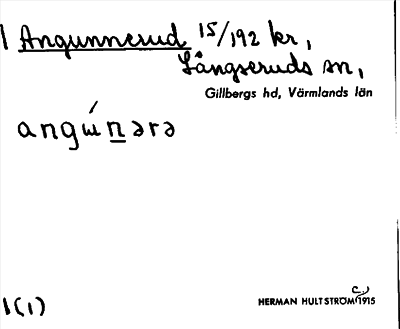 1 Angunnerud 15/192 kr,
Långseruds sn,
Gillbergs hd, Värmlands län
angɯ́n̲ərə
c.)
HERMAN HULTSTRÖM 1915
1(1)